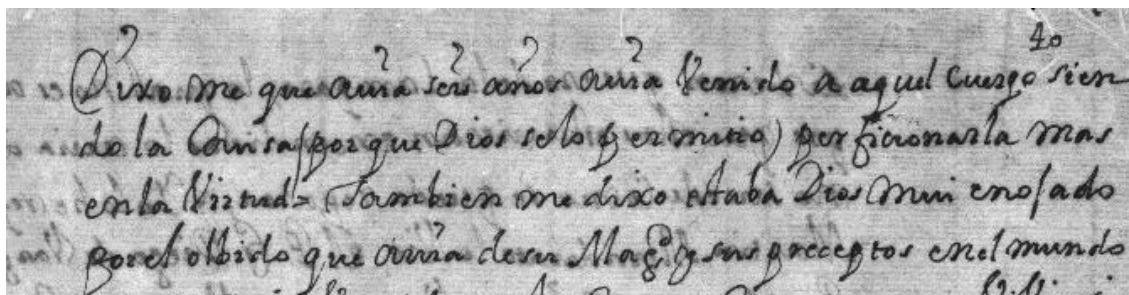 40
Dixo me que auia seis años auia Venido a aquel Cuerpo sien
do la Causa (porque Dios se lo permitio) perficionarla mas
en la Virtud = Tambien me dixo estaba Dios Mui enojado
por el olbido que auia de su Magd y sus preceptos en el mundo